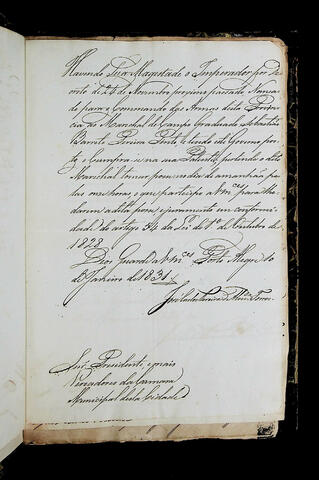 Havendo Sua Magestade o Imperador por De
creto de 24 de Novembro proximo passado Nomea
do para o Commando das Armas desta Provin
cia ao Marechal de Campo Graduado Sebastião
Barreto Pereira Pinto, e tendo este Governo pos
to o Cumpra-se na sua Patente, podendo o dito
Marechal tomar posse no dia de amanhãa pe
las onze horas: o que participo a Vm.ces para lhe
darem a dita posse e juramento em conformi
dade do artigo 54 da Lei do 1.º de Outubro de
1828
Deos Guarde a Vm.ces Porto Alegre 10
de Janeiro de 1831
Snr.
Presidente, e mais
Vereadores da Camara
Municipal desta Cidade